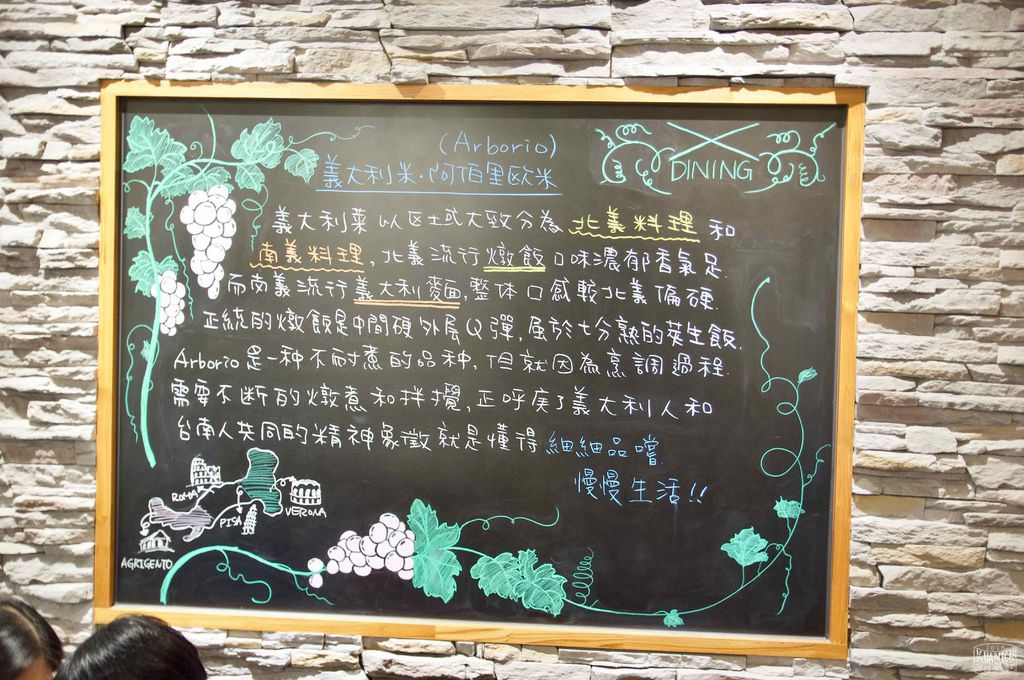 (Arborio)
義大利米·阿佰里欧米
DINING
義大利菜以区域大致分為北義料理和
南義料理,北義流行燉飯口味濃郁香氣足.
而南義流行義大利麵,整体口感較北義偏硬.
正統的燉飯是中間硬外層Q彈,屬於七分熟的夾生飯.
Arborio是一种不耐煮的品种,但就因為烹調過程
需要不断的燉煮和拌攪,正呼应了義大利人和
台南人共同的精神象徵就是懂得細細品嚐.
慢慢生活!!
ROMA
VERONA
PISA
AGRIGENTO